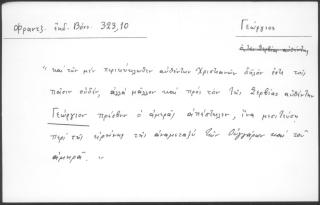 Φραντζ. ἐκδ. Βόνν. 323,10
Γεώργιος
ὁ τῆς Σερβίας αὐθέντης
"καὶ τὸν μὲν περικύκλωθεν αὐθέντων Χριστιανῶν δῆλον ἐστὶ τοῖς
πᾶσιν οὐδέν, ἀλλὰ μᾶλλον καὶ πρὸς τὸν τῆς Σερβίας αὐθέντην
Γεώργιον πρέσβιν ὁ ἀμηρᾶς ἀπέστειλεν, ἵνα μεσιτεύσῃ
περὶ τῆς εἰρήνης τῆς ἀναμεταξὺ τῶν Οὐγγάρων καὶ τοῦ
ἀμηρᾶ".